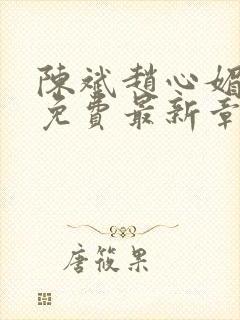 陳斌趙心媚
免費最新章
唐筱果